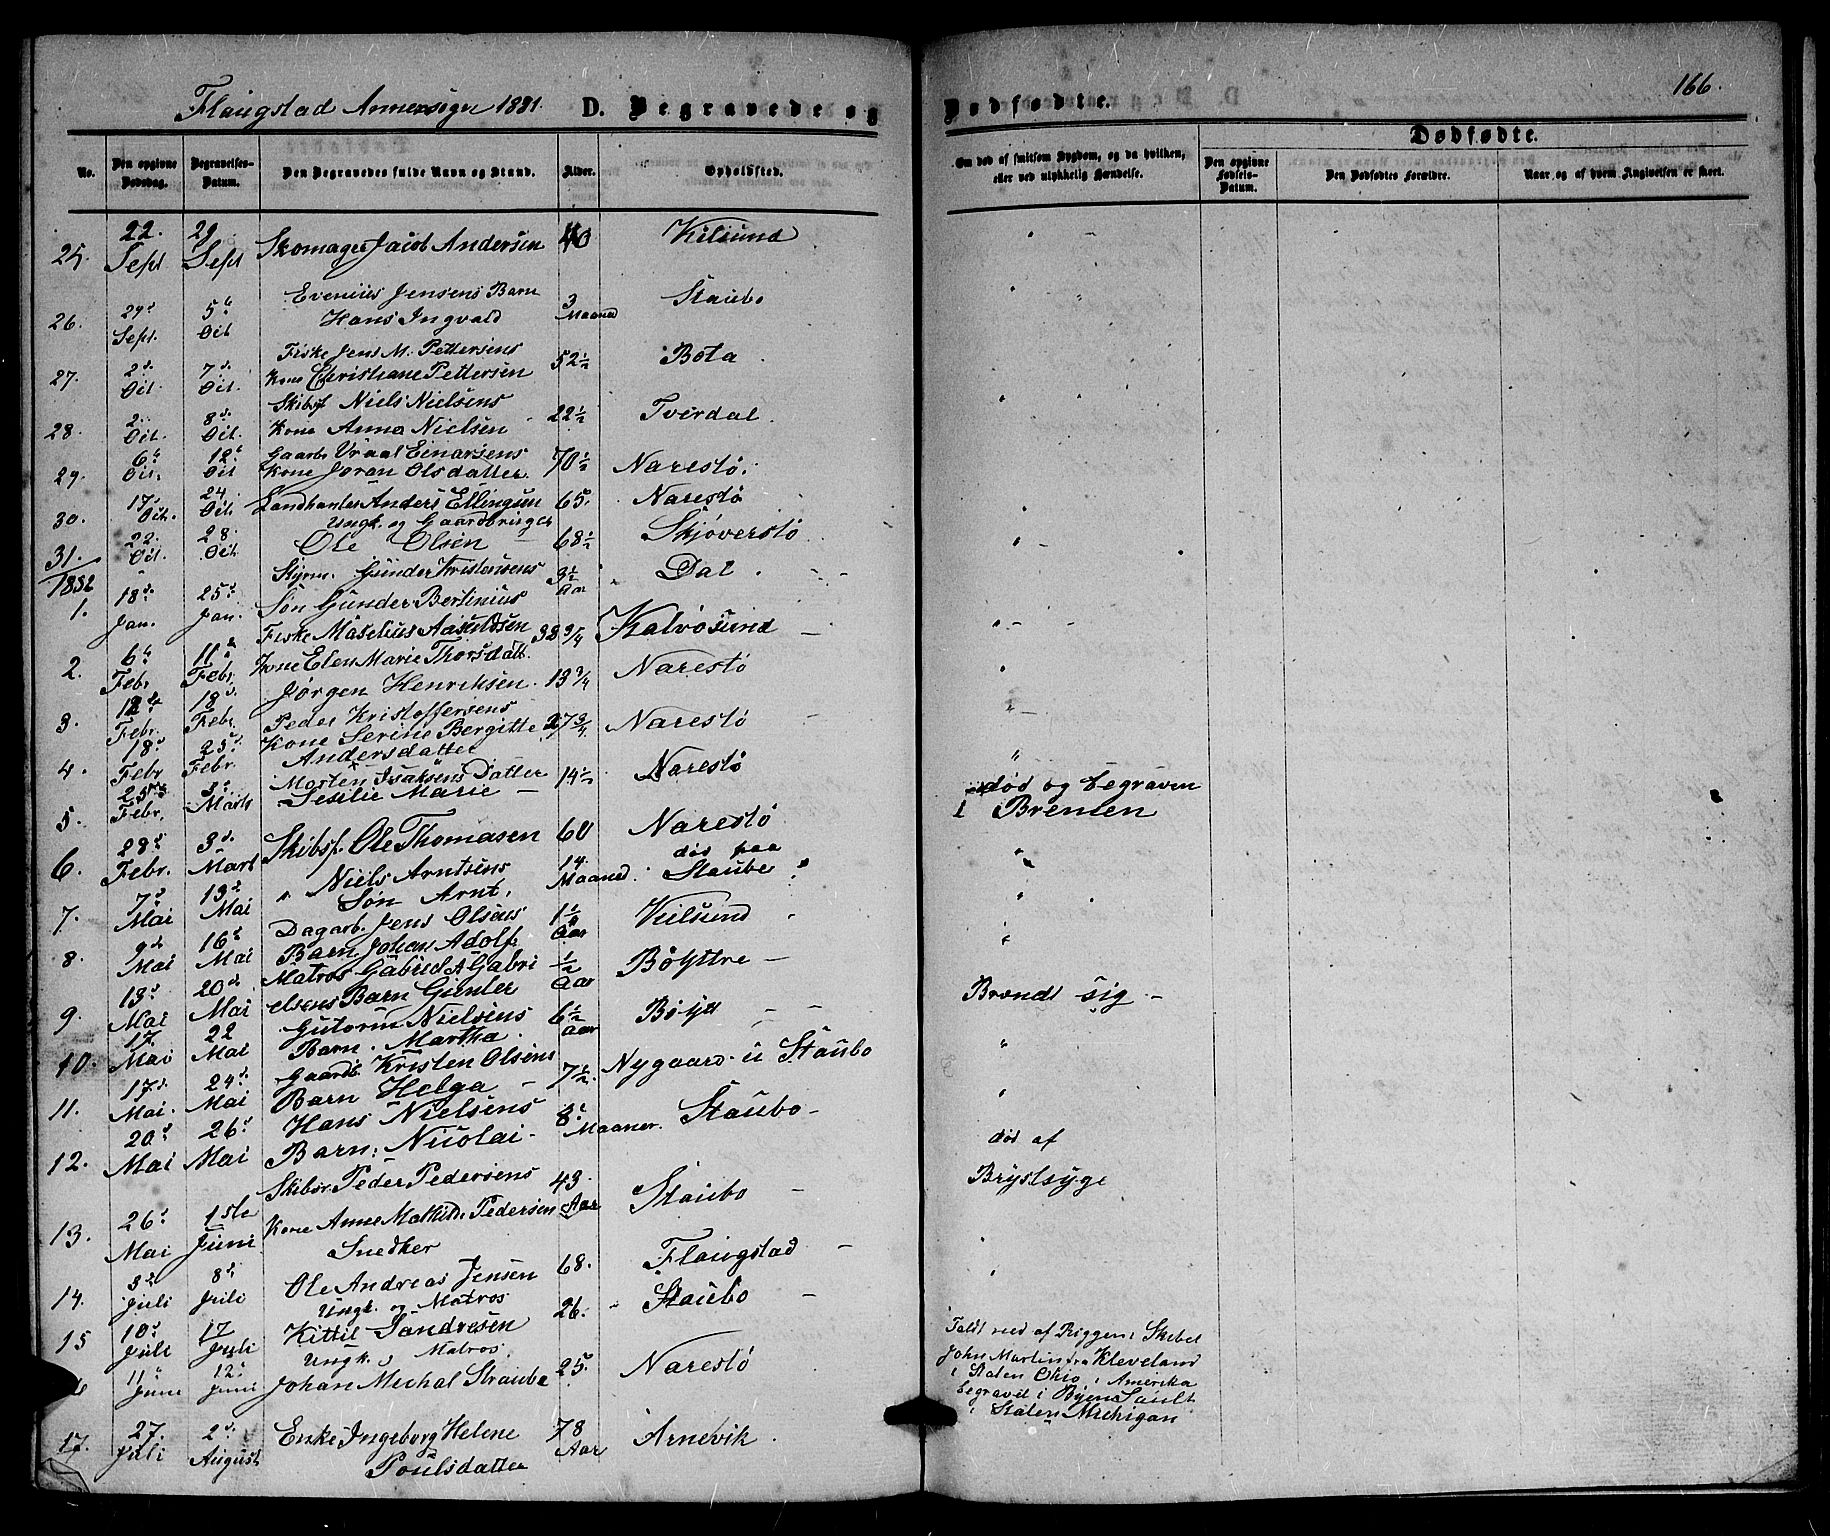 Flaugstad Annexsogn 1881. D. Begravede og Dødfødte. 166.
No. Den opgivne Dødsdag. Begravelses-Datum. Den Begravedes fulde Navn og Stand. Alder. Opholdssted.
Om død af smitsom Sygdom, og da hvilken, eller ved ulykkelig Hændelse. Dødfødte. Den opgivne Fødsels-Datum. Den Dødfødtes Forældre. Naar, og af hvem Angivelsen er skeet.
25. 22. Sept 29 Sept Skomager Jacob Andersen 40 Kilsund
26. 29d Sept. 5te Oct Evenius Jensens Barn
Hans Ingvald 3 Maaned Staubo
27. 2d Oct. 7d Oct. Fiske Jens M. Pettersens
Kone Christiane Pettersen 52½ Bota
28. 2. Oct. 8d Oct. Skibsf Niels Nielsens
Kone Anna Nielsen 22½ Tverdal
29. 6te Oct. 12te Oct Gaarbr Vraal Einarsens
Kone Joran Olsdatter 70½ Narestö
30. 17d Oct. 24 Oct. Landhanler Anders Ellingsen 65. Narestö
31. 22. Oct. 28. Oct. Ungk. og Gaardbruger
Ole Olsen 68½ Skjöverstö
1882
1. 18d Jan. 25d Jan. Skyrm. Gunder Kristensens
Sön Gunder Bertinius 3½ Aar Dal
2. 6te Febr 11te Febr Fiske Maselius Aasuldsen
Kone Elen Marie Thorsdatt. 38¾ Kalvösund
3. 12te Febr. 18d Febr. Jørgen Henriksen 13¾ Narestö
4. 18d Febr 25d Febr. Peder Kristoffersens
Kone Serine Bergitte
Andersdatter 27¾ Narestö
5. 25de Febr. 3d Marts Morten Isaksens Datter
Sesilie Marie 14½ Narestö
6. 28d Febr. 3d Mart Skibsf. Ole Thomasen 60 Narestö død og begraven
i Bremen
7. 7d Mai 13d Mai Niels Arntsens
Søn Arnt. 14. Maaned. död paa
Staubo
8. 9de Mai 16d Mai Dagarb. Jens Olsens
Barn Johan Adolf 1¼ Aar Kilsund
9. 13d Mai 20d Mai Matros Gabriel A Gabri
elsens Barn Gunler ½ Aar Böyttre
10. 17. Mai 22 Mai Gutorm Nielsens
Barn. Martha. 6½ Aar Böyd Brændt sig
11. 17d Mai. 24d Mai Gaardb. Kristen Olsens
Barn Helga 7½. Nygaard u Staubo
12. 20d Mai 26d Mai Hans Nielsens
Barn: Nicolai 8. Maaner. Staubo
13. 26d Mai 1ste Juni Skibsr. Peder Pedersens
Kone Anne Mathild. Pedersen 43. Aar Staubo död af
Brystsyge
14. 3d Juli 8d Juli Snedker
Ole Andreas Jensen 68. Flaugstad
15 10d Juli 17 Juli Ungk. og Matros
Kittil Tandresen 26. Staubo
11te Juni 12te Juni Ungk. Matros.
Johan Michal Straube 25. Narestö
Faldt ned af Riggen i Skibet
John Martin fra Kleveland
i Staten Ohio i Amerika
begravet i Byen Sault
i Staten Michigan
17. 27. Juli 2d August Enke Ingeborg Helene
Poulsdatter 78 Aar Arnevik